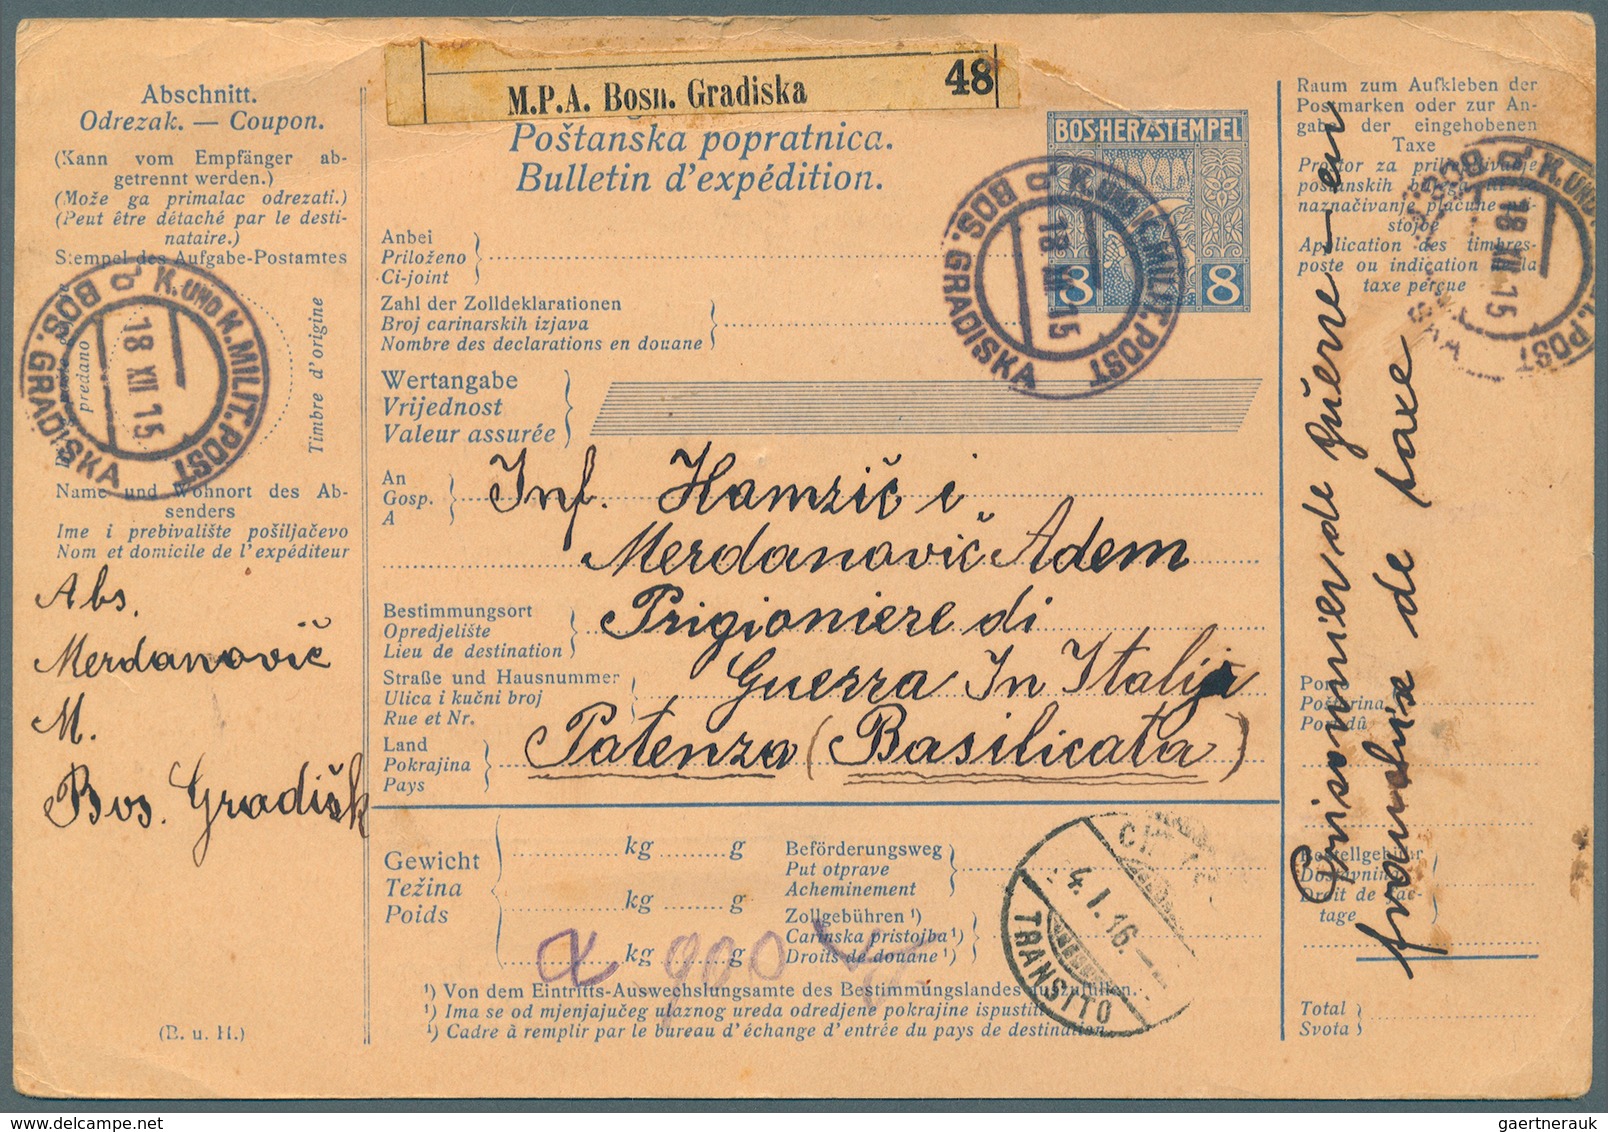 Abschnitt.
Odrezak. — Coupon.
(Kann vom Empfänger ab-
getrennt werden.)
(Može ga primalac odrezati.)
(Peut être détaché par le desti-
nataire.)
Stempel des Aufgabe-Postamtes
predano
Timbre d'origine
K. UND K. MILIT. POST
BOS. GRADISKA
18 XII 15
Name und Wohnort des Ab-
senders
Ime i prebivalište pošiljačevo
Nom et domicile de l'expéditeur
Abs.
Merdanović
M.
Bos. Gradišk
(B. u. H.)
M.P.A. Bosn. Gradiska 48
Poštanska popratnica.
Bulletin d'expédition.
BOS-HERZ-STEMPEL
8 8
K. UND K. MILIT. POST
BOS. GRADISKA
18 XII 15
Anbei
Priloženo
Ci-joint
Zahl der Zolldeklarationen
Broj carinarskih izjava
Nombre des declarations en douane
Wertangabe
Vrijednost
Valeur assurée
An
Gosp.
A
Inf. Hamzić i
Merdanović Adem
Bestimmungsort
Opredjelište
Lieu de destination
Prigioniere di
Straße und Hausnummer
Ulica i kućni broj
Rue et Nr.
Guerra In Italija
Land
Pokrajina
Pays
Patenza (Basilicata)
Gewicht
Težina
Poids
kg g
kg g
kg g
Beförderungsweg
Put otprave
Acheminement
Zollgebühren ¹)
Carinska pristojba ¹)
Droits de douane ¹)
900
4.I.16.
TRANSITO
¹) Von dem Eintritts-Auswechslungsamte des Bestimmungslandes auszufüllen.
¹) Ima se od mjenjajućeg ulaznog ureda odredjene pokrajine ispustiti
¹) Cadre à remplir par le bureau d'échange d'entrée du pays de destination
Raum zum Aufkleben der
Postmarken oder zur An-
gabe der eingehobenen
Taxe
Prostor za priljepljivanje
poštanskih
naznačivanje plaćene pri-
stojbe
Application des timbres-
poste ou indication de la
taxe perçue
K. UND
POST
18 XII 15
Prisonnier de guerre - en
franchise de taxe
Porto
Poštarina
Port dû
Bestellgebühr
Dostavnina
Droit de fac-
tage
Total
Svota
gaertnerauk @ delcampe.net